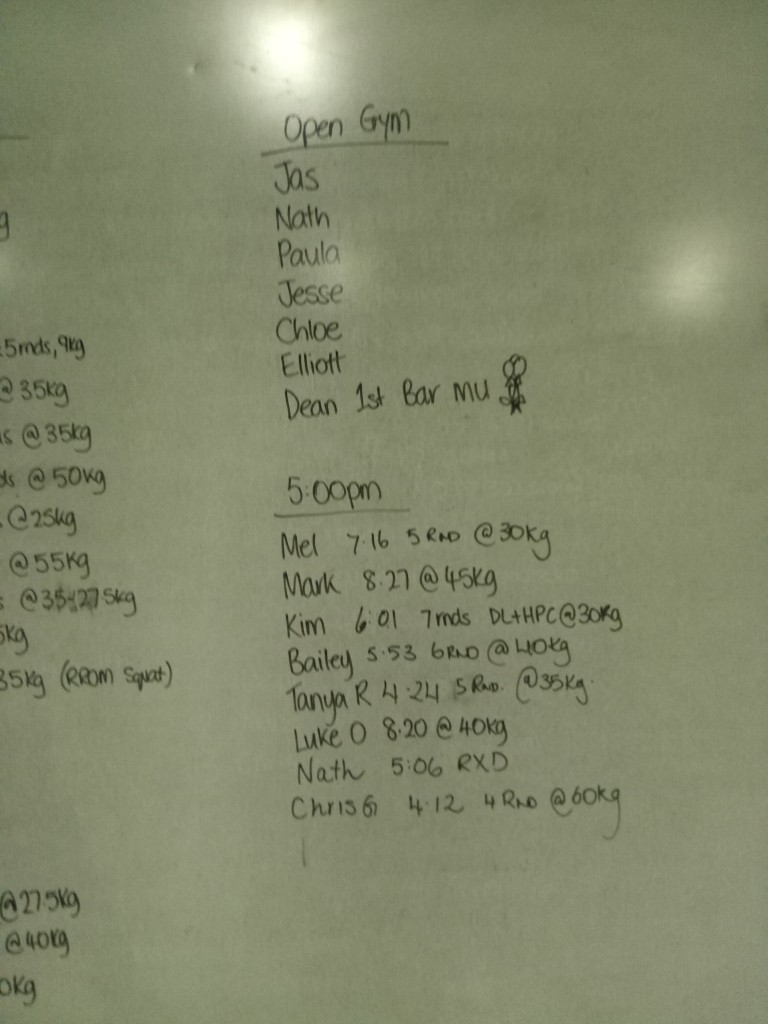 Open Gym
Jas
Nath
Paula
Jesse
Chloe
Elliott
Dean 1st Bar MU
5:00pm
Mel 7.16 5 RND @30kg
Mark 8.27 @45kg
Kim 6:01 7rnds DL+HPC@30kg
Bailey 5.53 6RND @40kg
Tanya R 4.24 5 RND. @35kg.
Luke O 8.20 @40kg
Nath 5:06 RXD
Chris G 4.12 4 RND @60kg
g
5rnds, 9kg
@35kg
s @35kg
ds @50kg
@25kg
@55kg
s @35-27.5kg
5kg
35kg (RROM Squat)
@27.5kg
@40kg
0kg